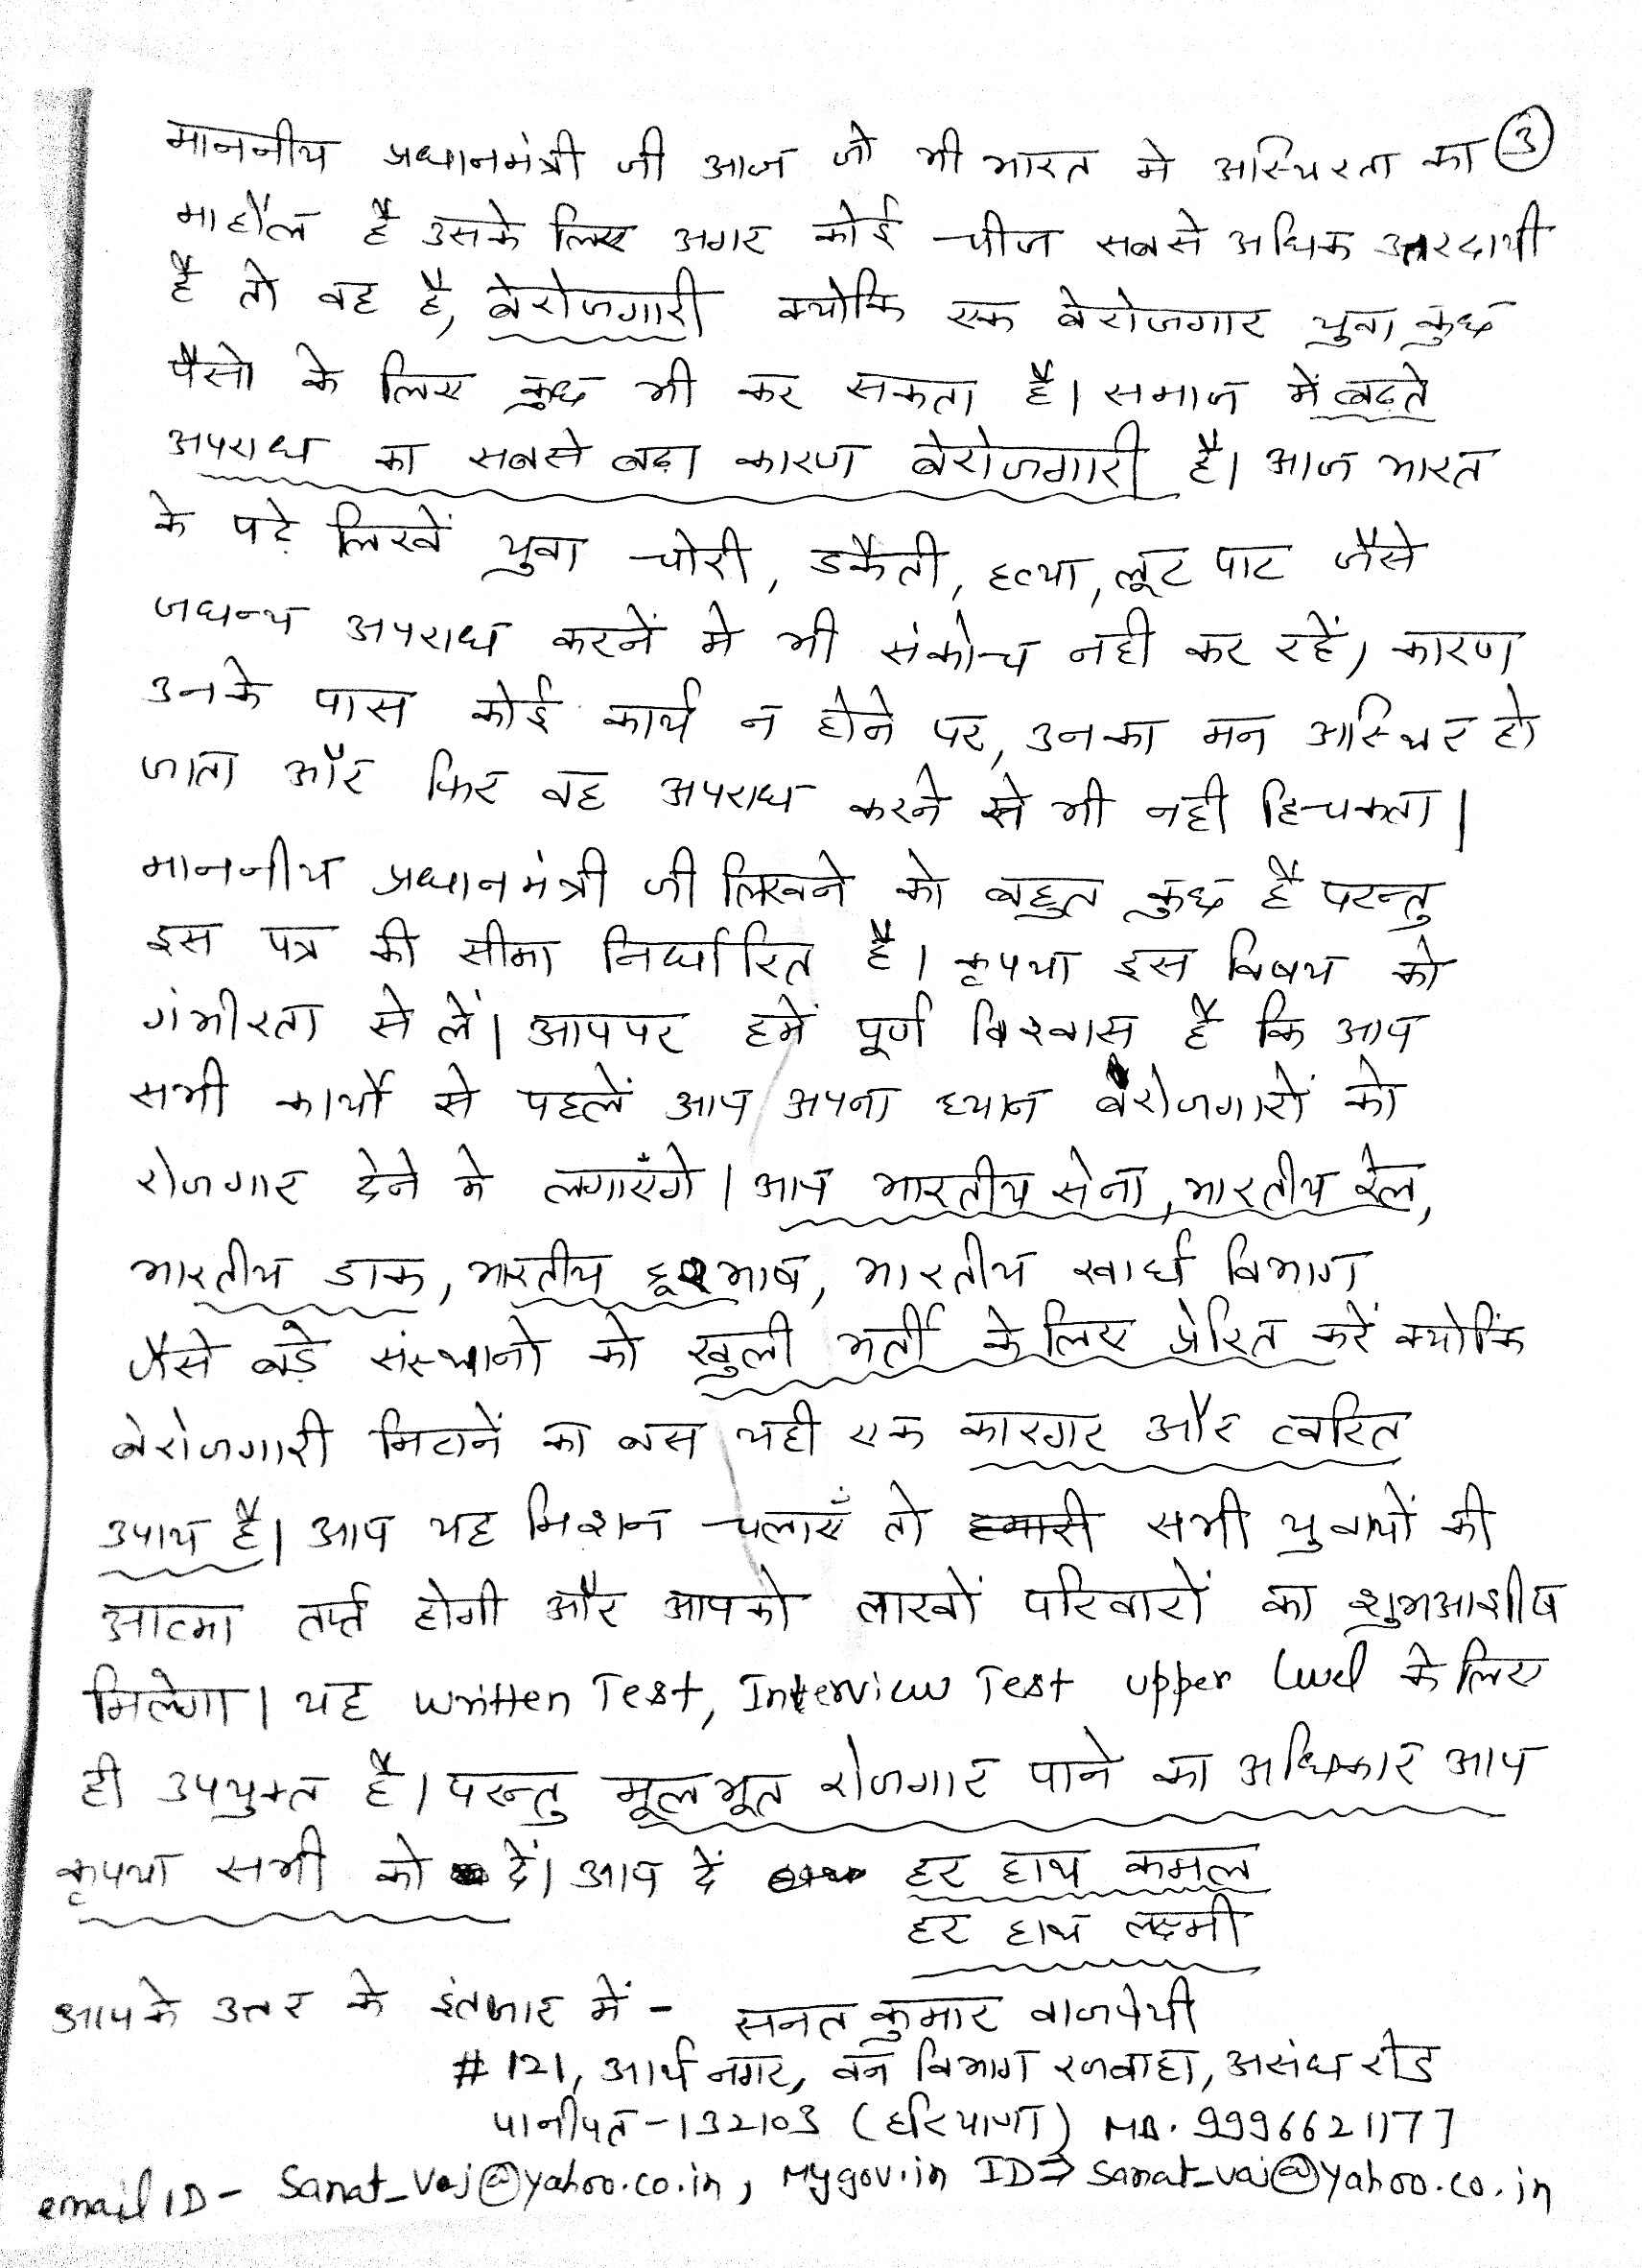 माननीय प्रधानमंत्री जी आज जो भी भारत मे अस्थिरता का ③
माहौल है उसके लिए अगर कोई चीज सबसे अधिक उत्तरदायी
है तो वह है, बेरोजगारी क्योकि एक बेरोजगार युवा कुछ
पैसो के लिए कुछ भी कर सकता है। समाज में बढ़ते
अपराध का सबसे बढ़ा कारण बेरोजगारी है। आज भारत
के पढ़े लिखें युवा चोरी, डकैती, हत्या, लूट पाट जैसे
जघन्य अपराध करनें मे भी संकोच नही कर रहें, कारण
उनके पास कोई कार्य न होने पर, उनका मन अस्थिर हो
जाता और फिर वह अपराध करने से भी नही हिचकता।
माननीय प्रधानमंत्री जी लिखने को बहुत कुछ है परन्तु
इस पत्र की सीमा निर्धारित है। कृपया इस विषय को
गंभीरता से लें। आप पर हमें पूर्ण विश्वास है कि आप
सभी कार्यो से पहलें आप अपना ध्यान बेरोजगारों को
रोजगार देने मे लगाएंगे। आप भारतीय सेना, भारतीय रेल,
भारतीय डाक, भारतीय दूरभाष, भारतीय खार्घ विभाग
जैसे बड़े संस्थानो को खुली भर्ती के लिए प्रेरित करें क्योकि
बेरोजगारी मिटानें का बस यही एक कारगर और त्वरित
उपाय है। आप यह मिशन चलाएँ तो हमारी सभी युवायों की
आत्मा तर्प्त होगी और आपको लाखों परिवारों का शुभआशीष
मिलेगा। यह written Test, Interview Test upper level के लिए
ही उपयुक्त है। परन्तु मूलभूत रोजगार पाने का अधिकार आप
कृपया सभी को दें। आप दें हर हाथ कमल
हर हाथ लक्ष्मी
आपके उत्तर के इंतजार में - सनत कुमार वाजपेयी
#121, आर्य नगर, वन विभाग रजवाहा, असंध रोड
पानीपत-132103 (हरियाणा) MB. 9996621177
email ID - Sanat_vaj@yahoo.co.in, Mygov.in ID⇒ Sanat_vaj@yahoo.co.in